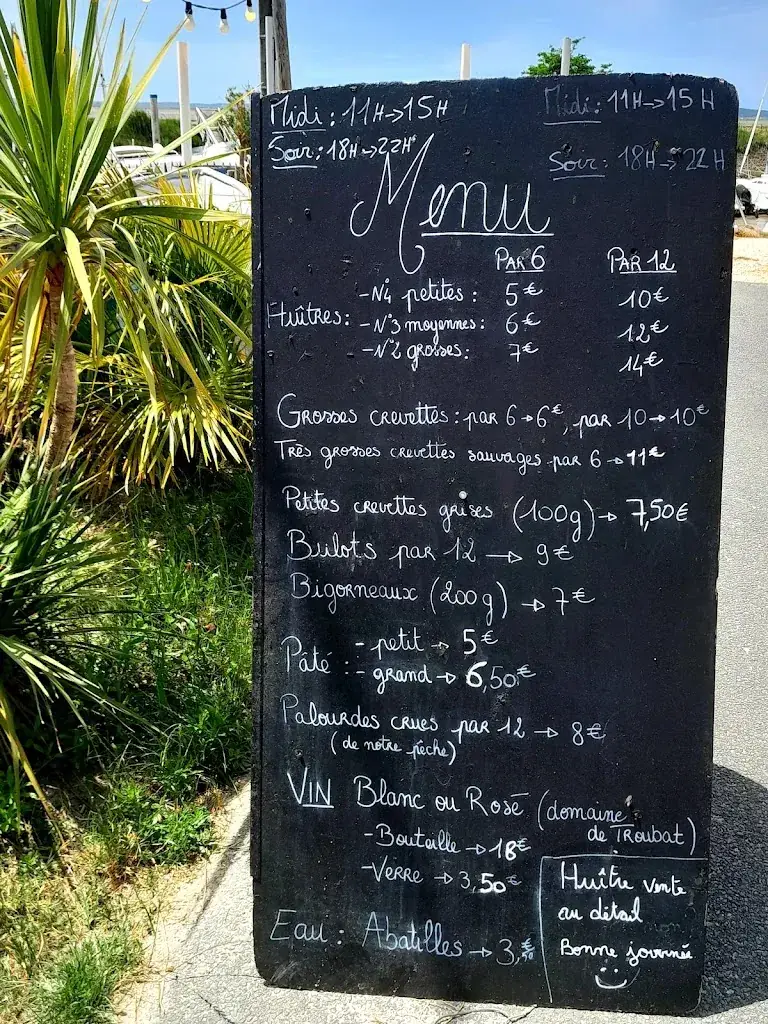 Midi : 11H→15H
Midi : 11H→15H
Soir : 18H→22H
Soir : 18H→22H
Menu
PAR 6 PAR 12
Huîtres : -N°4 petites : 5€ 10€
-N°3 moyennes : 6€ 12€
-N°2 grosses : 7€ 14€
Grosses crevettes : par 6→6€, par 10→10€
Très grosses crevettes sauvages par 6→11€
Petites crevettes grises (100g)→ 7,50€
Bulots par 12 → 9€
Bigorneaux (200g) → 7€
Pâté : - petit → 5€
- grand → 6,50€
Palourdes crues par 12 → 8€
(de notre pêche)
VIN Blanc ou Rosé (domaine
de TROUBAT)
-Bouteille → 18€
-Verre → 3,50€
Eau : Abatilles → 3,50€
Huître vente
au détail
Bonne journée